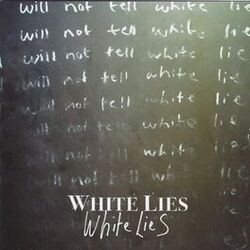 will not tell white
will not tell white lie
will not tell white lie
will not tell white lie
will not tell white lie
will not tell white lie
will not tell white lie
WHITE LIES
White Lies